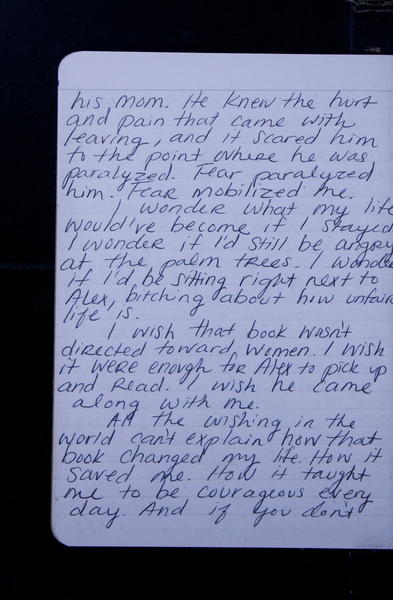 his mom. He knew the hurt
and pain that came with
leaving, and it scared him
to the point where he was
paralyzed. Fear paralyzed
him. Fear mobilized me.
I wonder what my life
would've become if I stayed
I wonder if I'd still be angry
at the palm trees. I wonde
if I'd be sitting right next to
Alex, bitching about how unfair
life is.
I wish that book wasn't
directed toward women. I wish
it were enough for Alex to pick up
and read. I wish he came
along with me.
All the wishing in the
world can't explain how that
book changed my life. How it
saved me. How it taught
me to be courageous every
day. And if you don't